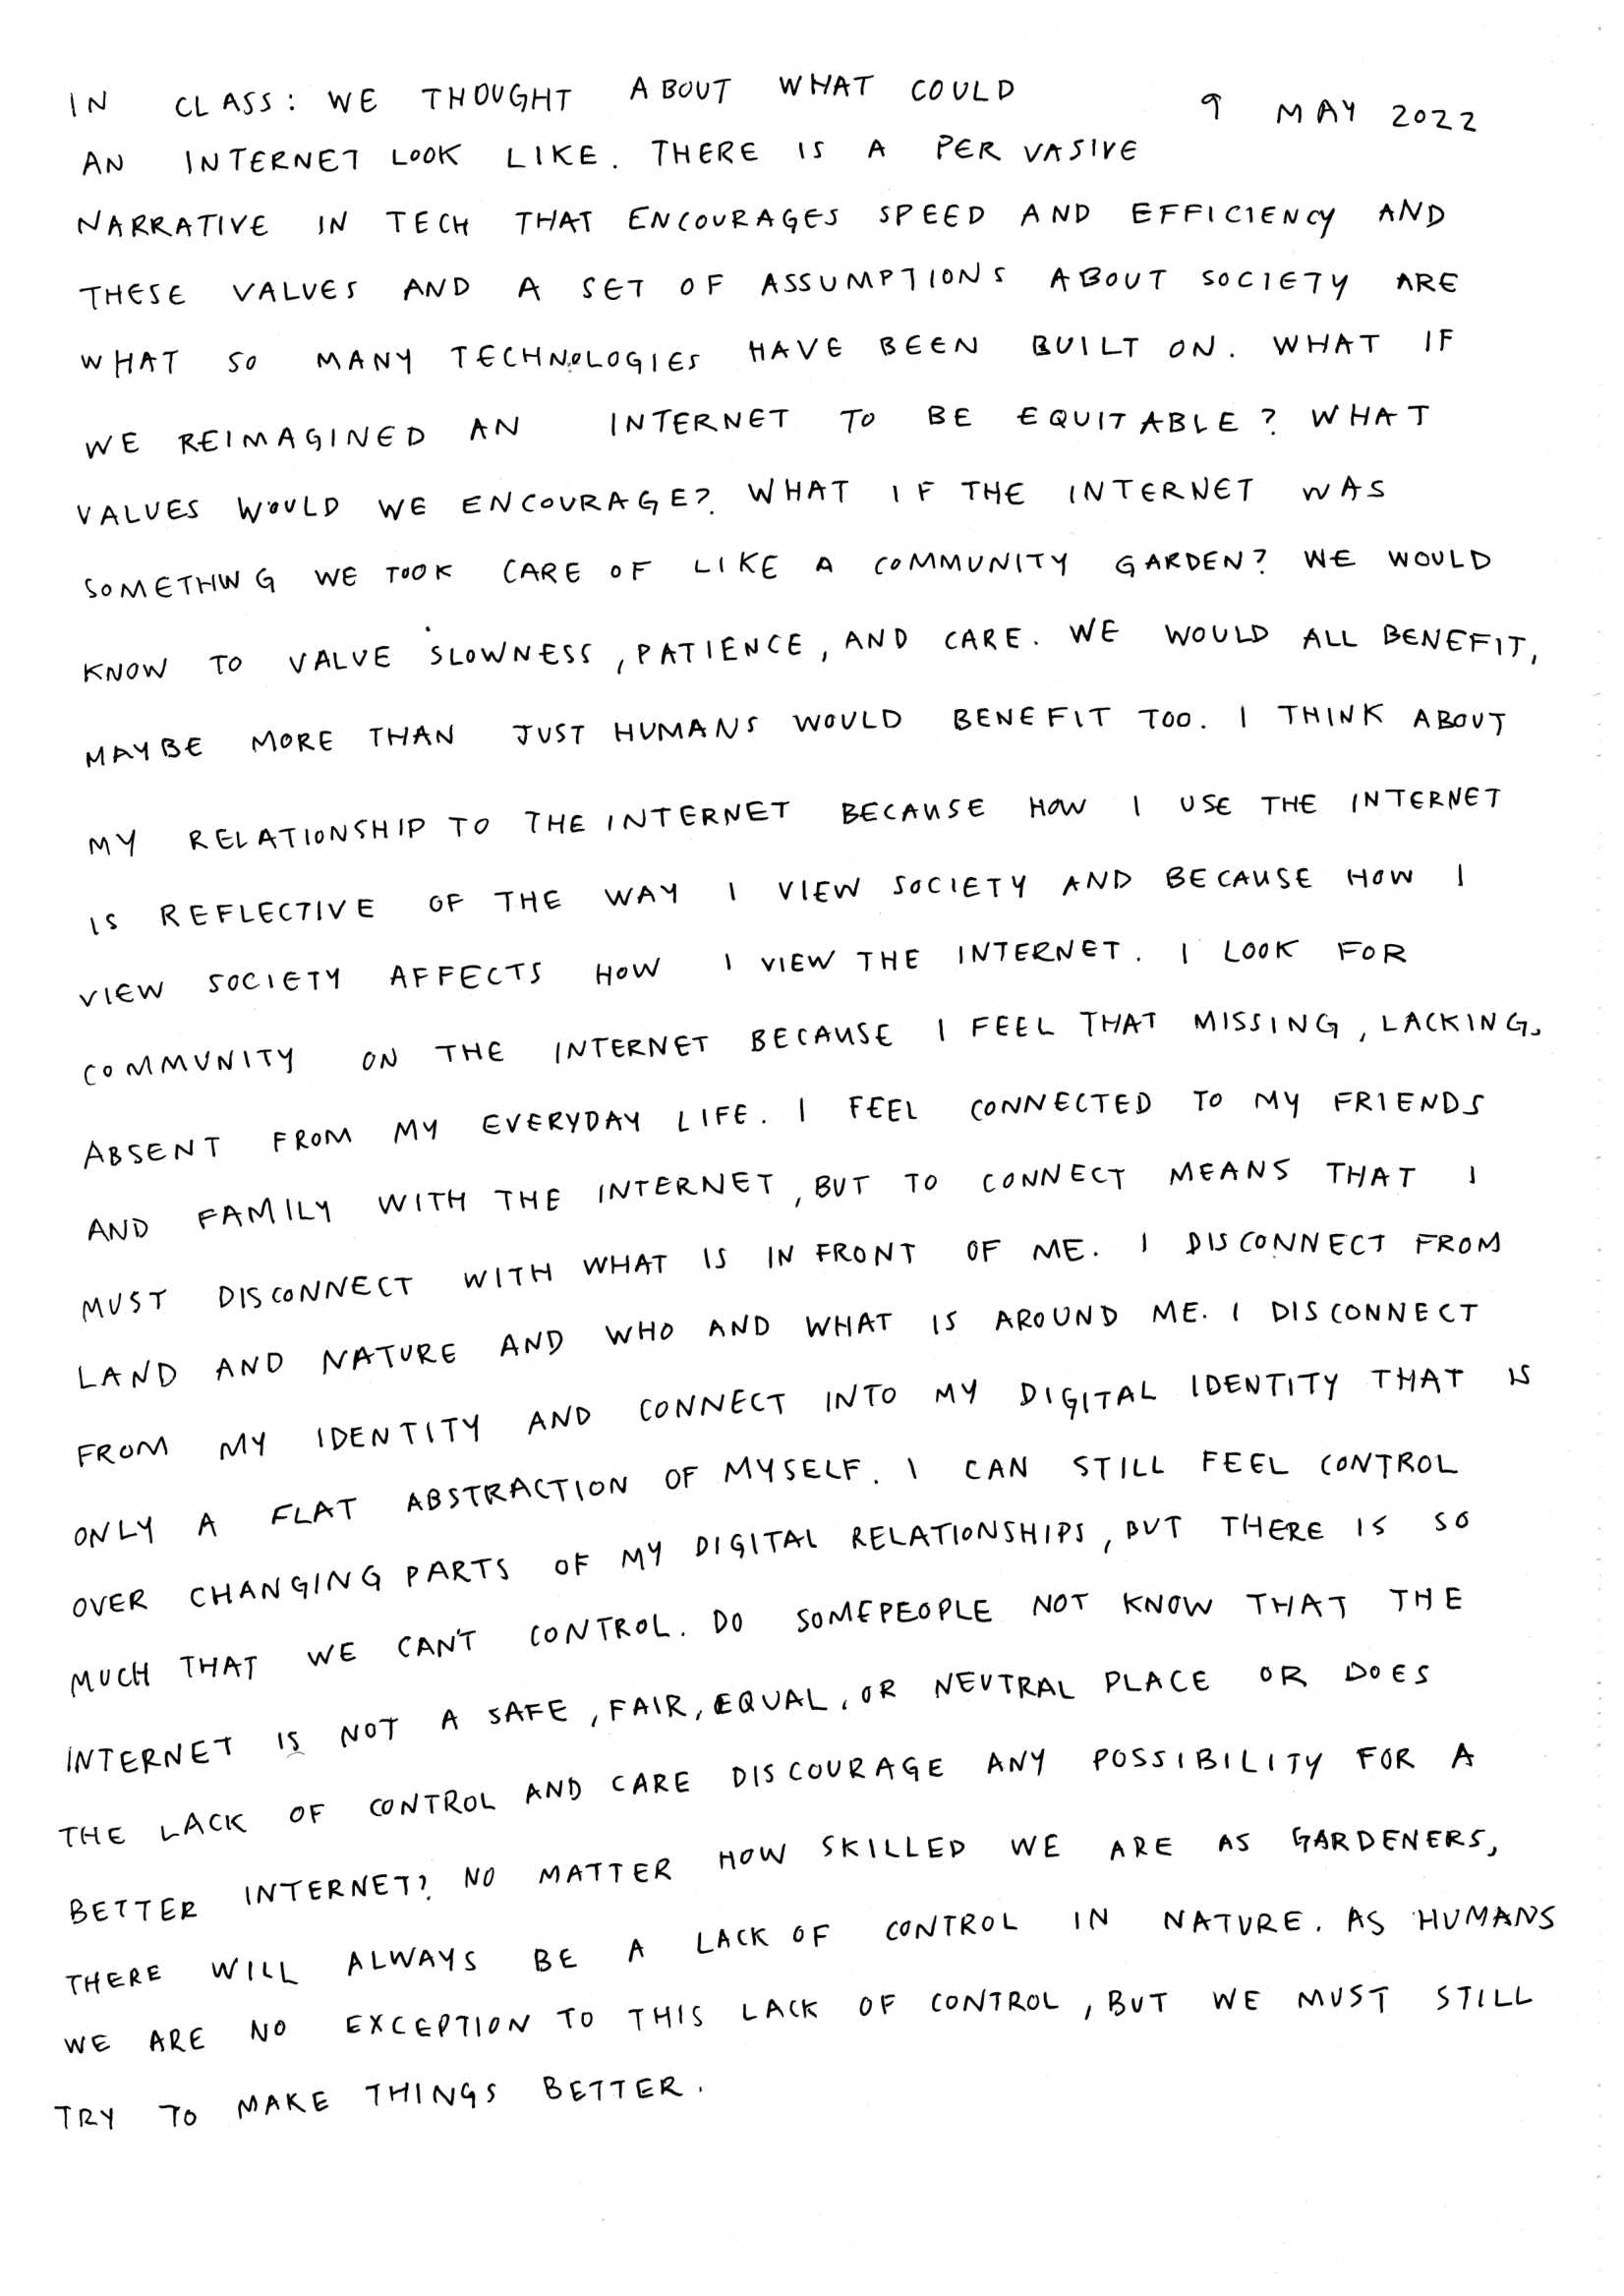 IN CLASS: WE THOUGHT ABOUT WHAT COULD
9 MAY 2022
AN INTERNET LOOK LIKE. THERE IS A PERVASIVE
NARRATIVE IN TECH THAT ENCOURAGES SPEED AND EFFICIENCY AND
THESE VALUES AND A SET OF ASSUMPTIONS ABOUT SOCIETY ARE
WHAT SO MANY TECHNOLOGIES HAVE BEEN BUILT ON. WHAT IF
WE REIMAGINED AN INTERNET TO BE EQUITABLE? WHAT
VALUES WOULD WE ENCOURAGE? WHAT IF THE INTERNET WAS
SOMETHING WE TOOK CARE OF LIKE A COMMUNITY GARDEN? WE WOULD
KNOW TO VALUE SLOWNESS, PATIENCE, AND CARE. WE WOULD ALL BENEFIT,
MAYBE MORE THAN JUST HUMANS WOULD BENEFIT TOO. I THINK ABOUT
MY RELATIONSHIP TO THE INTERNET BECAUSE HOW I USE THE INTERNET
IS REFLECTIVE OF THE WAY I VIEW SOCIETY AND BECAUSE HOW I
VIEW SOCIETY AFFECTS HOW I VIEW THE INTERNET. I LOOK FOR
COMMUNITY ON THE INTERNET BECAUSE I FEEL THAT MISSING, LACKING,
ABSENT FROM MY EVERYDAY LIFE. I FEEL CONNECTED TO MY FRIENDS
AND FAMILY WITH THE INTERNET, BUT TO CONNECT MEANS THAT I
MUST DISCONNECT WITH WHAT IS IN FRONT OF ME. I DISCONNECT FROM
LAND AND NATURE AND WHO AND WHAT IS AROUND ME. I DISCONNECT
FROM MY IDENTITY AND CONNECT INTO MY DIGITAL IDENTITY THAT IS
ONLY A FLAT ABSTRACTION OF MYSELF. I CAN STILL FEEL CONTROL
OVER CHANGING PARTS OF MY DIGITAL RELATIONSHIPS, BUT THERE IS SO
MUCH THAT WE CAN'T CONTROL. DO SOME PEOPLE NOT KNOW THAT THE
INTERNET IS NOT A SAFE, FAIR, EQUAL, OR NEUTRAL PLACE OR DOES
THE LACK OF CONTROL AND CARE DISCOURAGE ANY POSSIBILITY FOR A
BETTER INTERNET? NO MATTER HOW SKILLED WE ARE AS GARDENERS,
THERE WILL ALWAYS BE A LACK OF CONTROL IN NATURE. AS HUMANS
WE ARE NO EXCEPTION TO THIS LACK OF CONTROL, BUT WE MUST STILL
TRY TO MAKE THINGS BETTER.